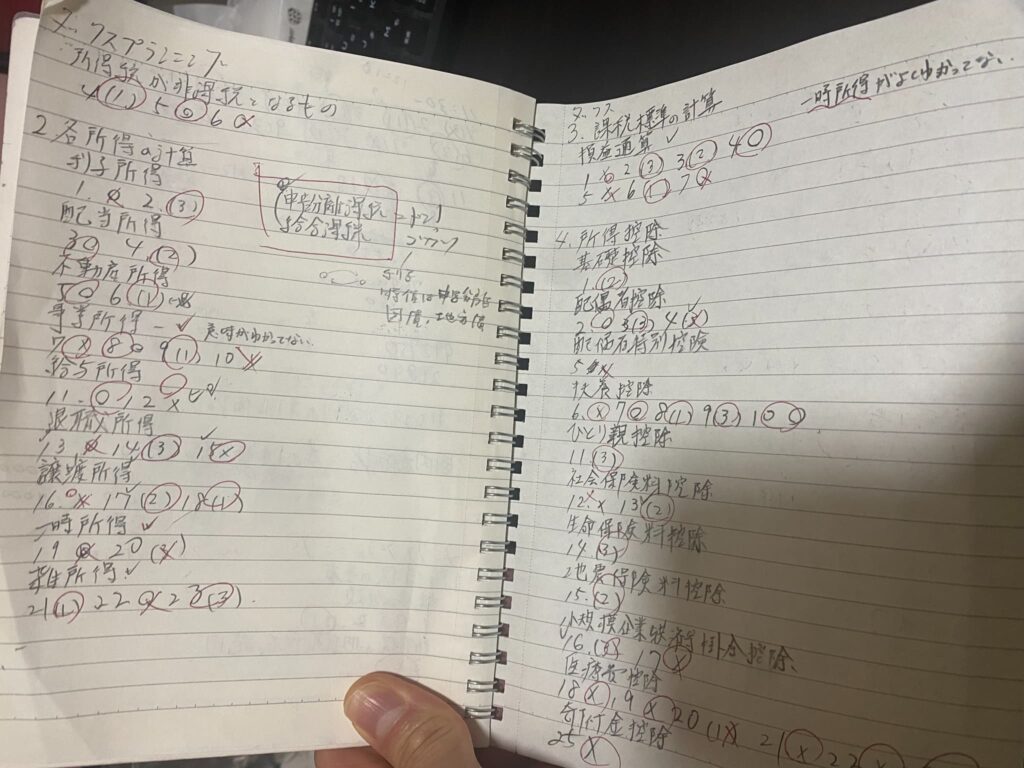 タックスプランニング
所得税が非課税となるもの
4(1) 5 ○ 6 ×
2 各所得の計算
利子所得
1. × 2. (3)
配当所得
3 ○ 4. (2)
不動産所得
5 ○ 6 (1)
事業所得 ✓
7 × 8 ○ 9 (1) 10 ×
給与所得
11. ○ 12 ×
退職所得
13 × 14 (3) 15 ×
譲渡所得
16. × 17 (2) 18 (1)
一時所得 ✓
19 20 (×)
雑所得 ✓
21 (1) 22 23 (3)
申告分離課税
総合課税
国債、地方債
一時所得がよくわかってない.
タックス
3. 課税標準の計算
損益通算 ✓
1. 2 (3) 3 (2) 4 ○
5 × 6 (1) 7 ×
4. 所得控除
基礎控除
1. (2)
配偶者控除
2 ○ 3 (3) 4 (×)
配偶者特別控除
5 ×
扶養控除
6. × 7 ○ 8 (1) 9 (3) 10 ○
ひとり親控除
11 (3)
社会保険料控除
12. × 13 (2)
生命保険料控除
14 (3)
地震保険料控除
15. (2)
小規模企業共済等掛金控除
16. 17 ×
医療費控除
18 × 19 × 20 (1) 21 × 22
寄附金控除
25 ×